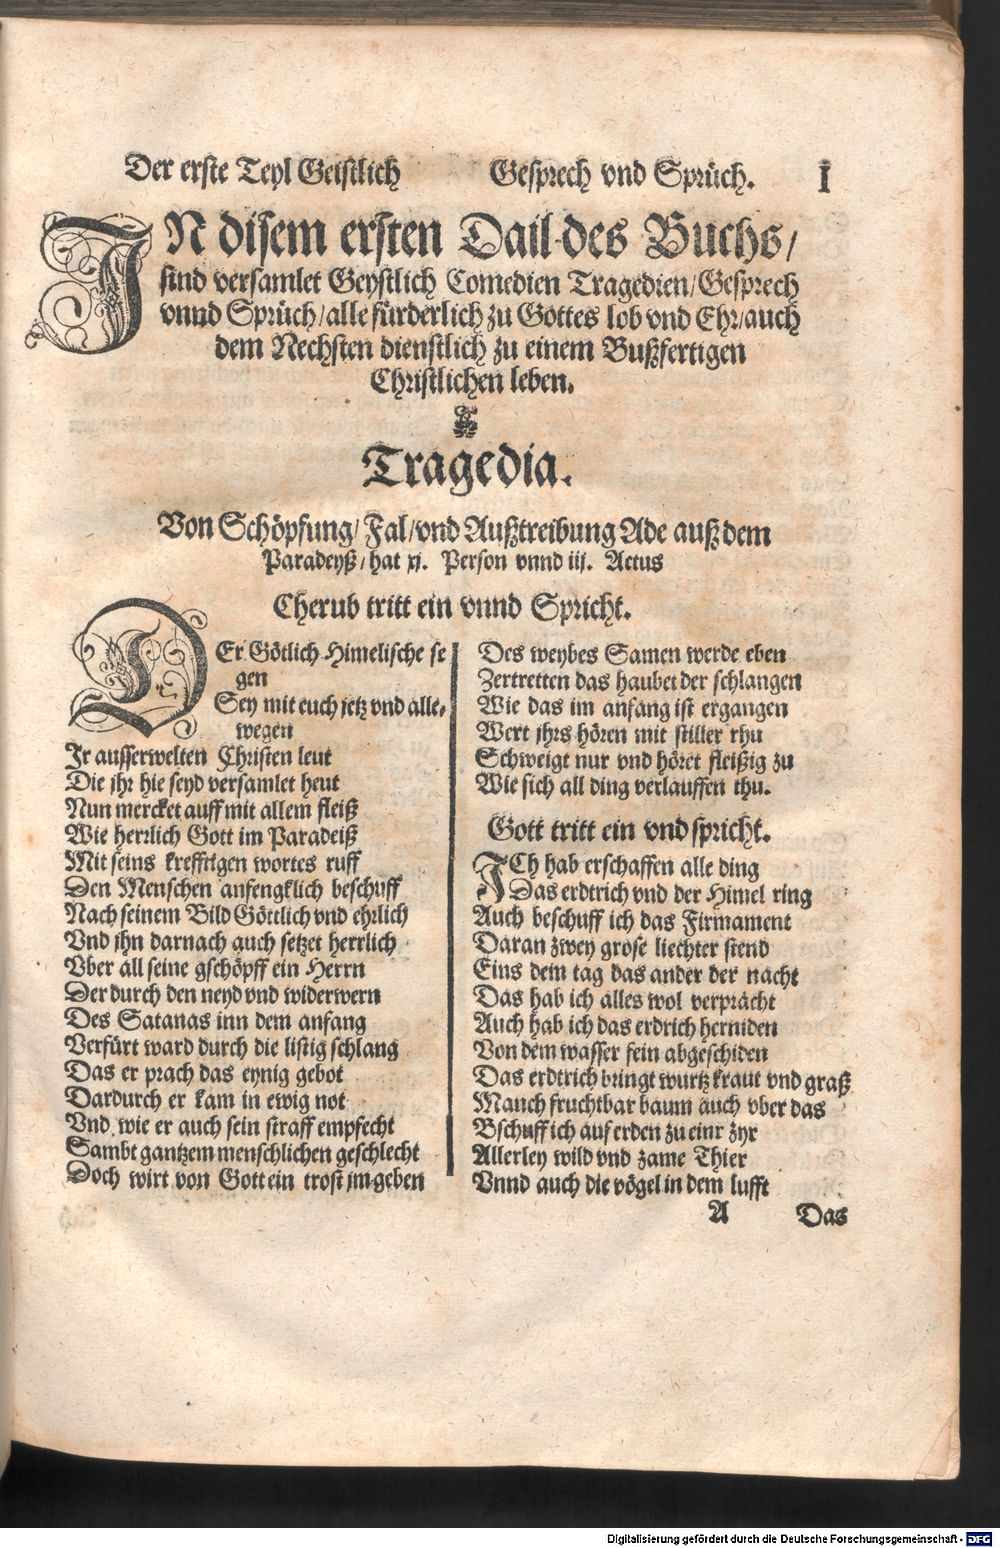 Der erste Teyl Geistlich Gesprech vnd Sprüch. I
IN disem ersten Dail des Buchs/
sind versamlet Geystlich Comedien Tragedien/Gesprech
vnnd Sprüch/alle fürderlich zu Gottes lob vnd Ehr/auch
dem Nechsten dienstlich zu einem Bußfertigen
Christlichen leben.
Tragedia.
Von Schöpfung/Fal/vnd Außtreibung Ade auß dem
Paradeyß/hat xj. Person vnnd iij. Actus
Cherub tritt ein vnnd Spricht.
DEr Götlich Himelische se
gen
Sey mit euch jetz vnd alle,
wegen
Jr ausserwelten Christen leut
Die jhr hie seyd versamlet heut
Nun mercket auff mit allem fleiß
Wie herrlich Gott im Paradeiß
Mit seins krefftigen wortes ruff
Den Menschen anfengklich beschuff
Nach seinem Bild Göttlich vnd ehrlich
Vnd jhn darnach auch setzet herrlich
Vber all seine gschöpff ein Herrn
Der durch den neyd vnd widerwern
Des Satanas inn dem anfang
Verfürt ward durch die listig schlang
Das er prach das eynig gebot
Dardurch er kam in ewig not
Vnd wie er auch sein straff empfecht
Sambt gantzem menschlichen geschlecht
Doch wirt von Gott ein trost jm geben
Des weybes Samen werde eben
Zertretten das haubet der schlangen
Wie das im anfang ist ergangen
Wert jhrs hören mit stiller rhu
Schweigt nur vnd höret fleißig zu
Wie sich all ding verlauffen thu.
Gott tritt ein vnd spricht.
JCh hab erschaffen alle ding
Das erdtrich vnd der Himel ring
Auch beschuff ich das Firmament
Daran zwey grose liechter stend
Eins dem tag das ander der nacht
Das hab ich alles wol verpracht
Auch hab ich das erdrich herniden
Von dem wasser fein abgeschiden
Das erdtrich bringt wurtz kraut vnd graß
Manch fruchtbar baum auch vber das
Bschuff ich auf erden zu einr zyr
Allerley wild vnd zame Thier
Vnnd auch die vögel in dem lufft
A Das
Digitalisierung gefördert durch die Deutsche Forschungsgemeinschaft - DFG